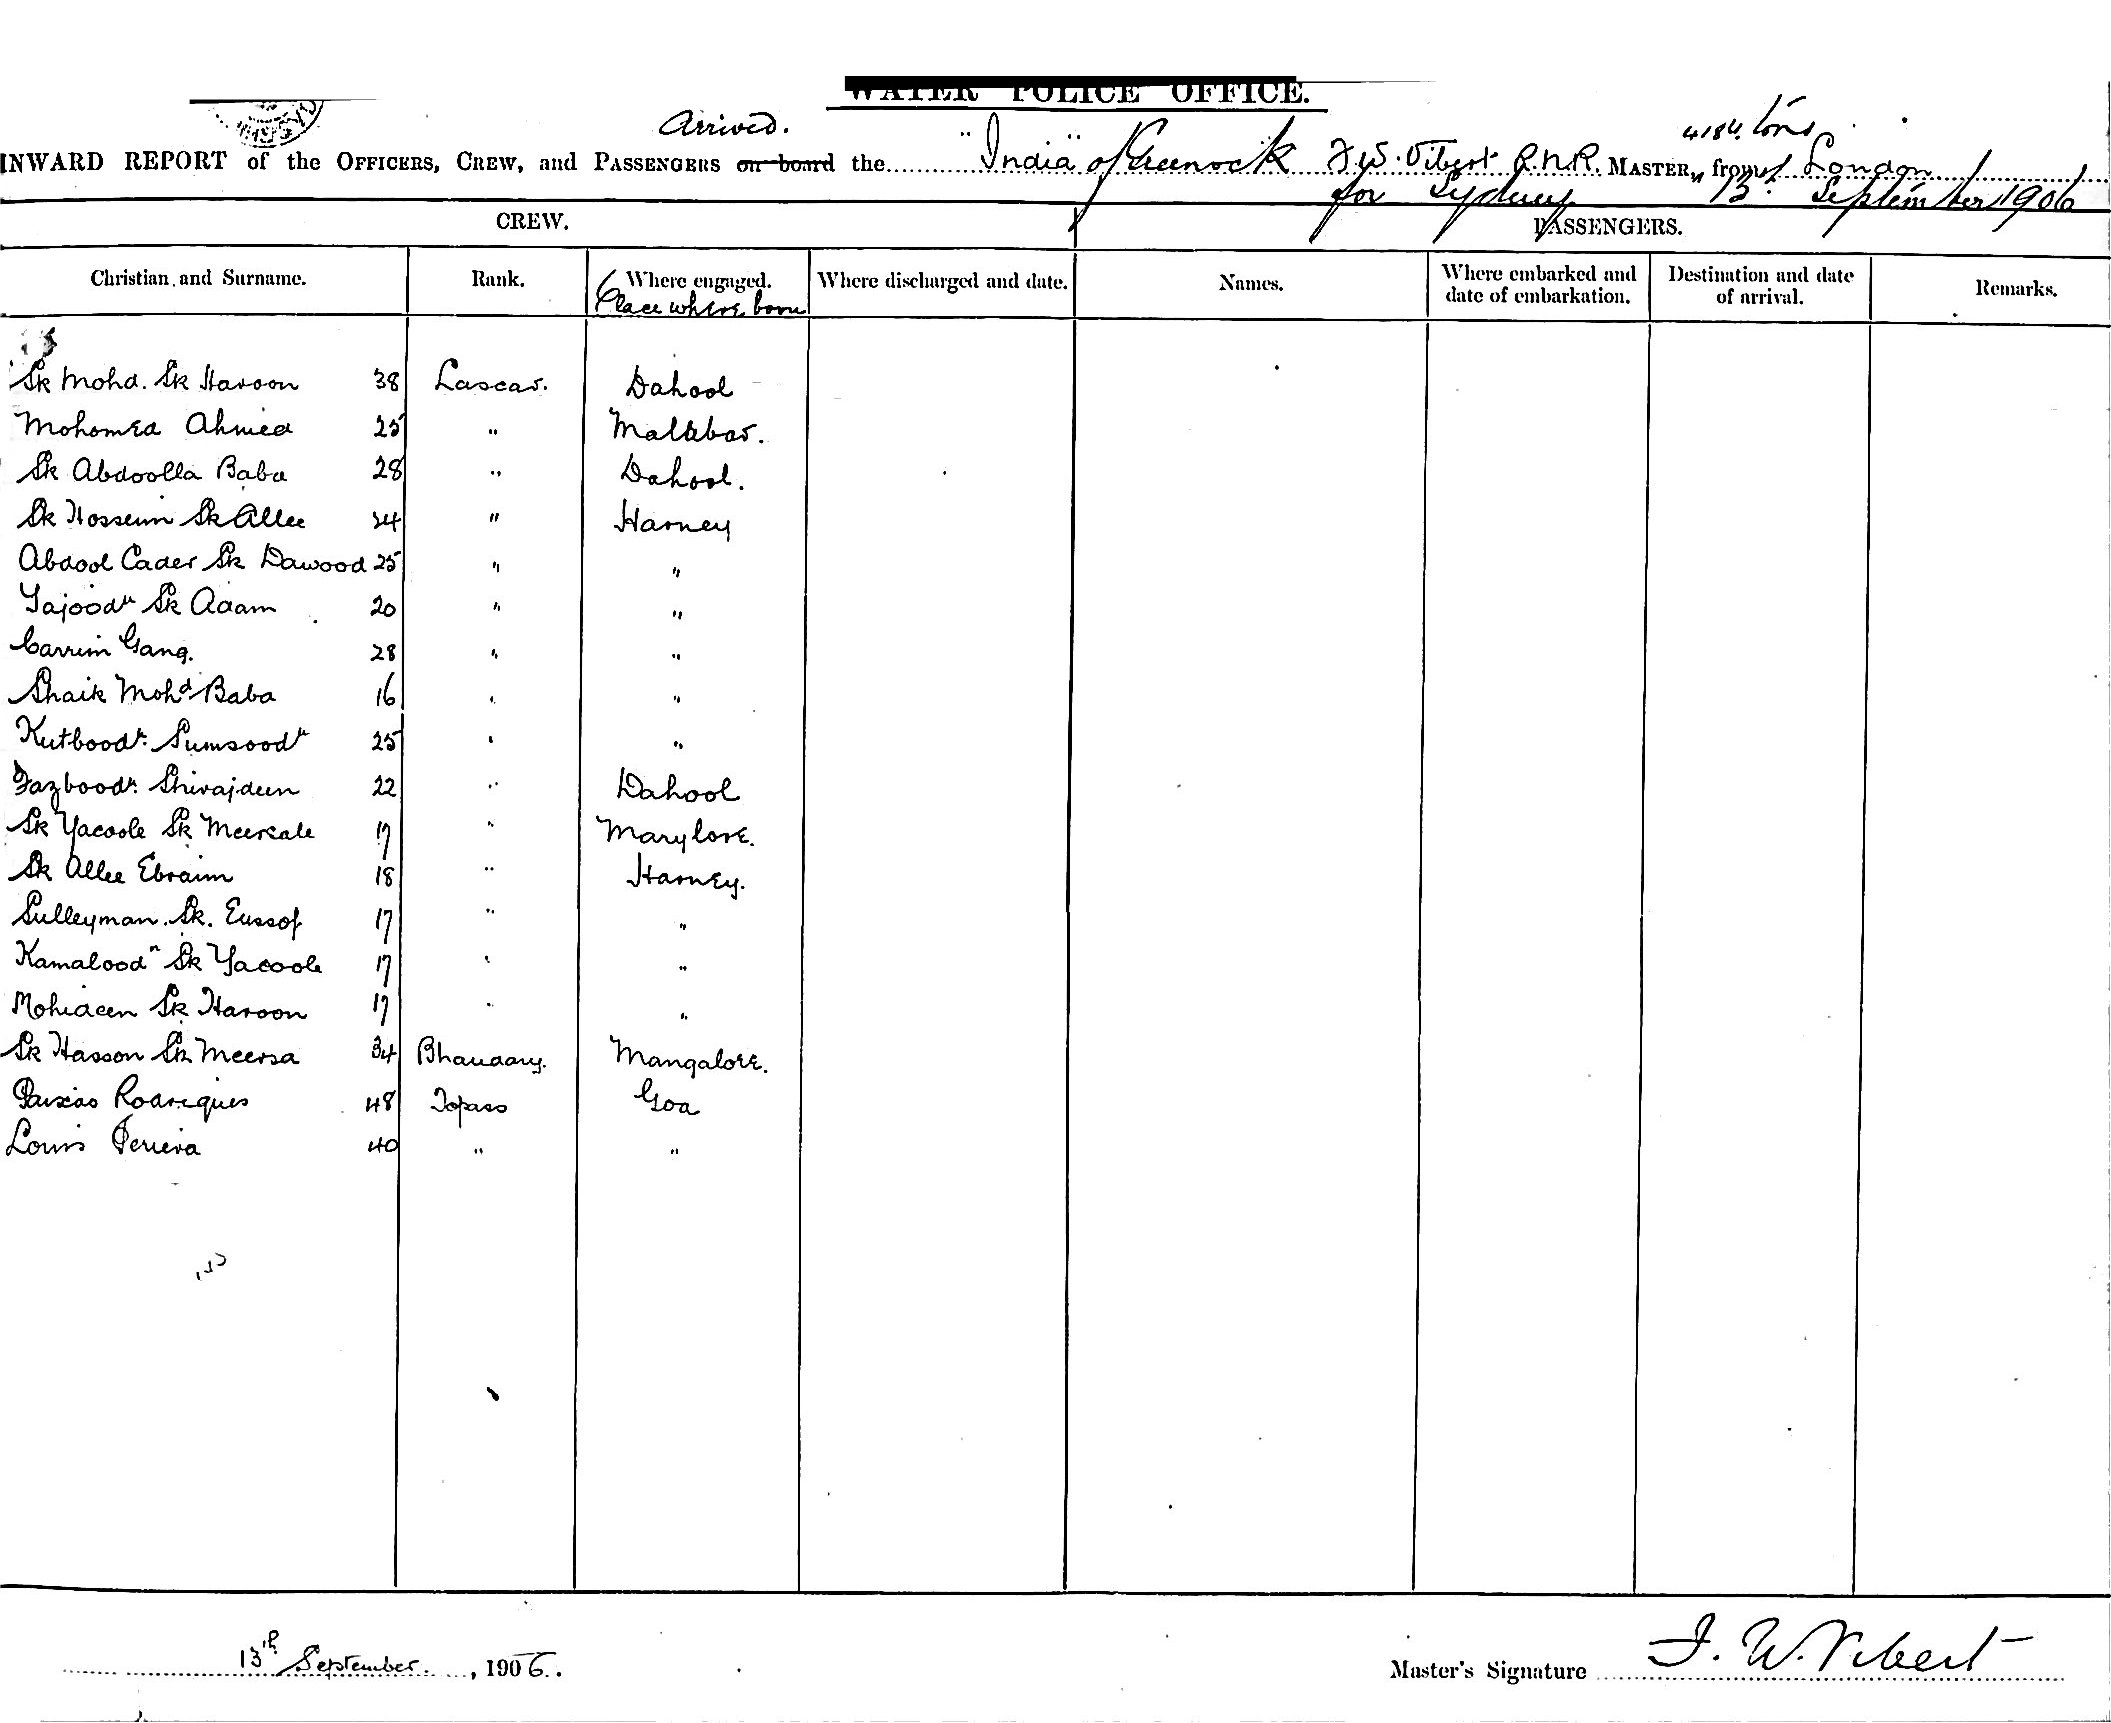 WATER POLICE OFFICE.
Arrived.
4184 tons
INWARD REPORT of the OFFICERS, CREW, and PASSENGERS on board the "India" of Greenock F.W. Vibert R.N.R. MASTER, from London
for Sydney 13 September 1906
CREW. PASSENGERS.
Christian and Surname. Rank. Where engaged. Where discharged and date. Names. Where embarked and date of embarkation. Destination and date of arrival. Remarks.
Place where born
Sk Mohd. Sk Haroon 38 Lascar. Dahool
Mohomed Ahmed 25 " Malabar.
Sk Abdoolla Baba 28 " Dahool.
Sk Hossein Sk Allee 24 " Harney
Abdool Cader Sk Dawood 25 " "
Tajoodn Sk Adam 20 " "
Carrim Gang. 28 " "
Shaik Mohd Baba 16 " "
Kutboodn. Sumsoodn 25 " "
Fazboodn. Shirajdeen 22 " Dahool
Sk Yacoole Sk Meercale 17 " Marylore.
Sk Allee Ebraim 18 " Harney.
Sulleyman. Sk. Eussof 17 " "
Kamaloodn Sk Yacoole 17 " "
Mohideen Sk Haroon 17 " "
Sk Hasson Sk Meersa 34 Bhandary. Mangalore.
Paixao Rodrigues 48 Topass Goa
Louis Periera 40 " "
13th September, 1906.
Master's Signature F. W. Vibert